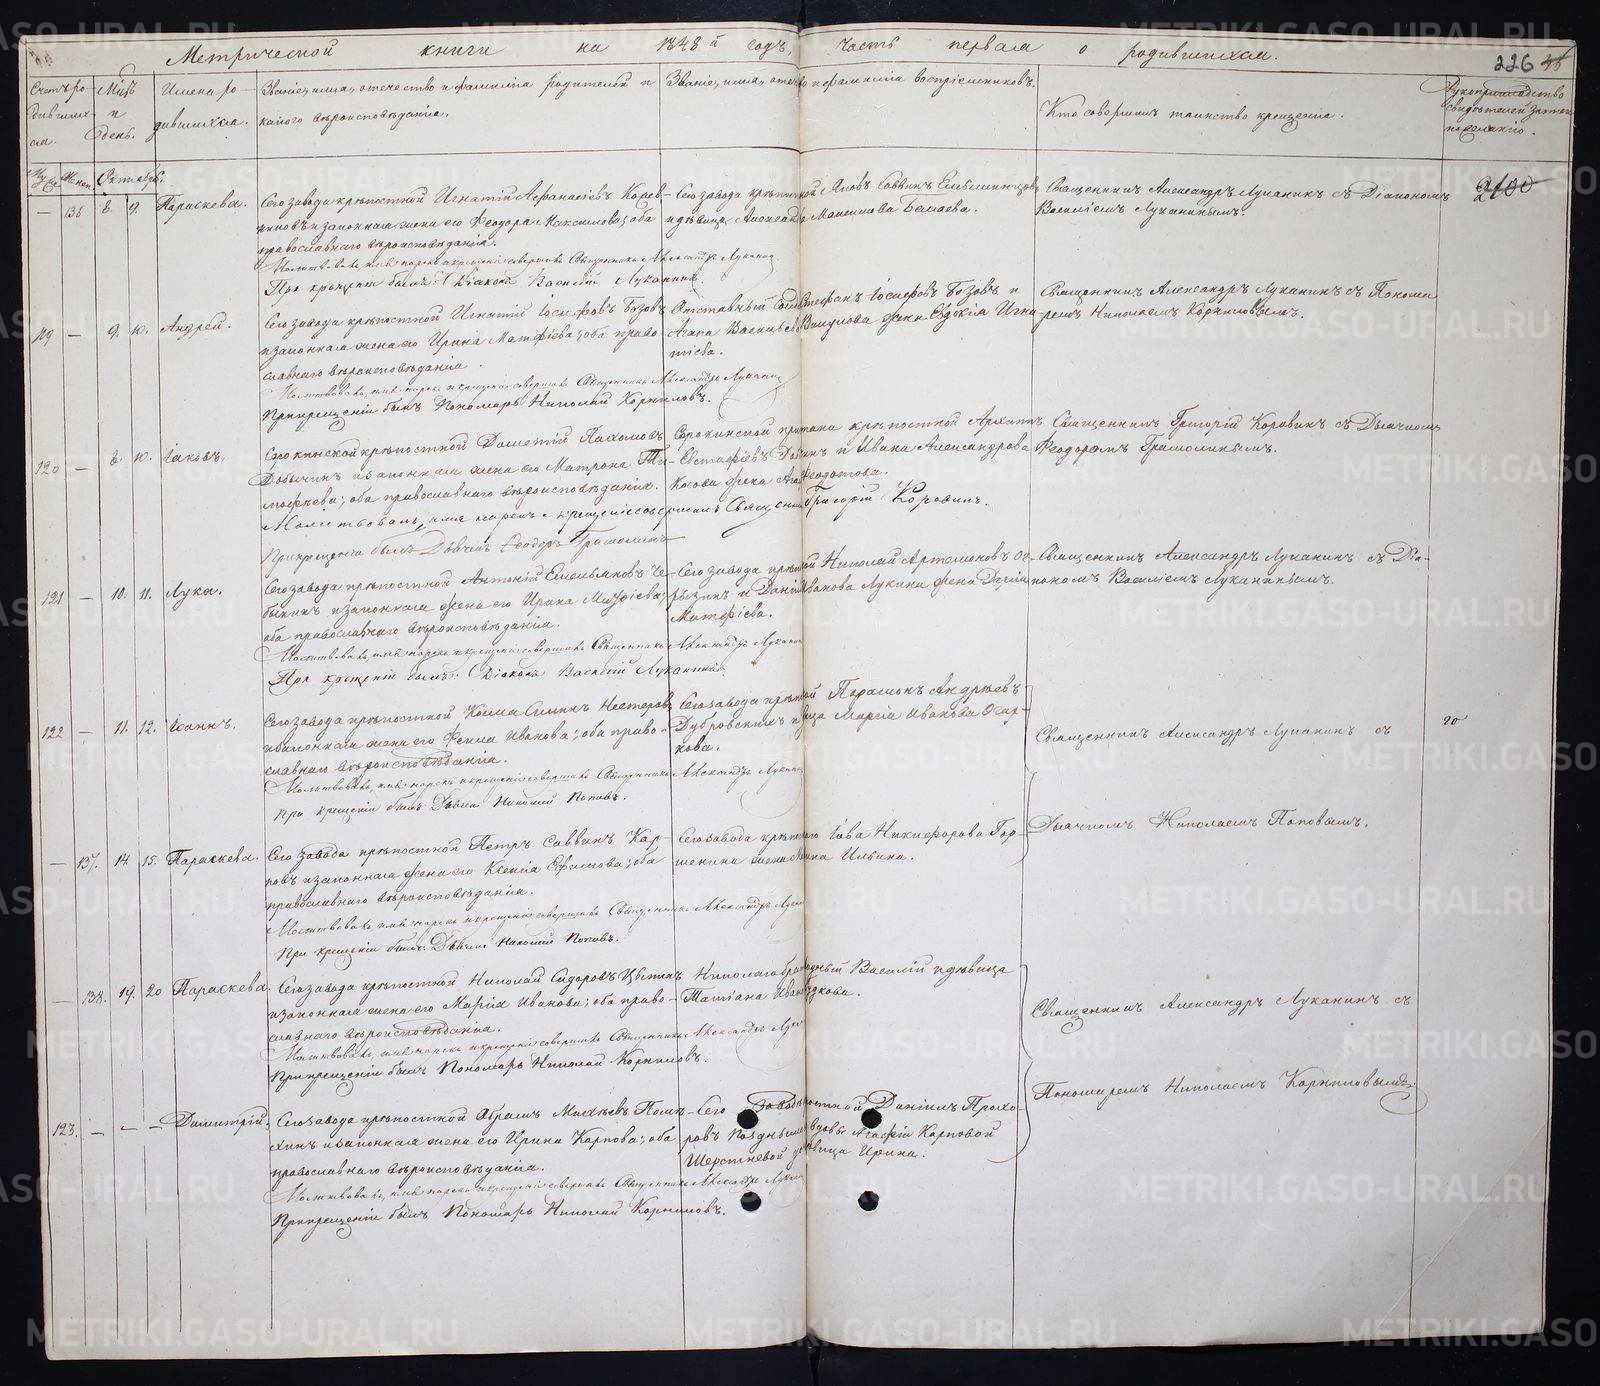 Метрической книги на 1848й годъ, часть первая о родившихся.
226
Счетъ родившихся.
Мцъ и день.
Имена родившихся.
Званіе, имя, отечество и фамилія родителей и какого вѣроисповѣданія.
Званіе, имя, отечество и фамилія воспріемниковъ.
Кто совершилъ таинство крещенія.
Рукоприкладство свидѣтелей записи по желанію.
Октября.
— 136 8. 9. Параскева.
Сего завода крѣпостной Игнатій Афанасіевъ
и законная жена его Феодора Максимова; оба
православнаго вѣроисповѣданія.
Молитвовалъ, имя нарекъ и крещеніе совершилъ Священникъ Александръ Луканин
При крещеніи былъ: Діаконъ Василій Луканинъ.
Сего завода крѣпостной Яковъ Саввинъ
и дѣвица Александра Беляева.
Священникъ Александръ Луканинъ съ Діакономъ
Василіемъ Луканинымъ.
119 — 9. 10. Андрей.
Сего завода крѣпостной Игнатій Іосифовъ Бозовъ
и законная жена его Ирина Матфіева; оба право-
славнаго вѣроисповѣданія.
Молитвовалъ, имя нарекъ и крещеніе совершилъ Священникъ Александръ Луканин
При крещеніи былъ Пономарь Николай Корниловъ.
Отставный Стефанъ Іосифовъ Бозовъ и
Агапа Васильева Викулова жена Евдокія Игна-
тіева.
Священникъ Александръ Луканинъ съ Понома-
ремъ Николаемъ Корниловымъ.
120 — 8. 10. Іаковъ.
Сорокинской крѣпостной Дометій Пахомовъ
Добычинъ и законная жена его Матрона Ти-
мофѣева; оба православнаго вѣроисповѣданія.
Молитвовалъ, имя нарекъ и крещеніе совершилъ Священник Григорій Коровинъ.
При крещеніи былъ Дьячекъ Феодоръ Грамолинъ
Сорокинской пристани крѣпостной Архипъ
Евстафіевъ и Ивана Александрова
Косова жена Феодотова.
Священникъ Григорій Коровинъ съ Дьячкомъ
Феодоромъ Грамолинымъ.
121 — 10. 11. Лука.
Сего завода крѣпостной Антоній Емельяновъ Че-
быкинъ и законная жена его Ирина
оба православнаго вѣроисповѣданія.
Молитвовалъ, имя нарекъ и крещеніе совершилъ Священникъ Александръ Луканин
При крещеніи былъ: Діаконъ Василій Луканинъ
Сего завода крѣпостной Николай Артемоновъ Ог-
рызкъ и Даніила Иванова Лукина жена Дарія
Матфіева.
Священникъ Александръ Луканинъ съ Діа-
кономъ Василіемъ Луканинымъ.
122 — 11. 12. Іоаннъ.
Сего завода крѣпостной Косма Нестеровъ
и законная жена его Фекла Иванова; оба право-
славнаго вѣроисповѣданія.
Молитвовалъ, имя нарекъ и крещеніе совершилъ Священникъ Александръ Луканин
При крещеніи былъ Дьячекъ Николай Поповъ.
Сего завода крѣпостной Парамонъ Андрѣевъ
Дубровскихъ и дѣвица Марія Иванова Огар-
кова.
Священникъ Александръ Луканинъ съ
Дьячкомъ Николаемъ Поповымъ.
20
— 137. 14 15. Параскева.
Сего завода крѣпостной Петръ Саввинъ Кар-
повъ и законная жена его Ксенія Ефимова; оба
православнаго вѣроисповѣданія.
Молитвовалъ, имя нарекъ и крещеніе совершилъ Священникъ Александръ Лукан
При крещеніи былъ: Дьячекъ Николай Поповъ.
Сего завода крѣпостнаго Іова Никифорова Гор-
шенина жена Анна Ильина.
— 138. 19. 20 Параскева.
Сего завода крѣпостной Николай Сидоровъ
и законная жена его Марія Иванова; оба право-
славнаго вѣроисповѣданія.
Молитвовалъ, имя нарекъ и крещеніе совершилъ Священникъ Александръ Лукан
При крещеніи былъ Пономарь Николай Корниловъ.
Василій и дѣвица
Татіана
Священникъ Александръ Луканинъ съ
Пономаремъ Николаемъ Корниловымъ.
123. — — — Димитрій.
Сего завода крѣпостной Абрамъ Михѣевъ
и законная жена его Ирина Карпова; оба
православнаго вѣроисповѣданія.
Молитвовалъ, имя нарекъ и крещеніе совершилъ Священникъ Александръ Лукан
При крещеніи былъ Пономарь Николай Корниловъ.
Сего завода крѣпостной Даніилъ Прохо-
ровъ и вдовы Агафіи Карповой
Шерстневой дѣвица Ирина.
METRIKI.GASO-URAL.RU